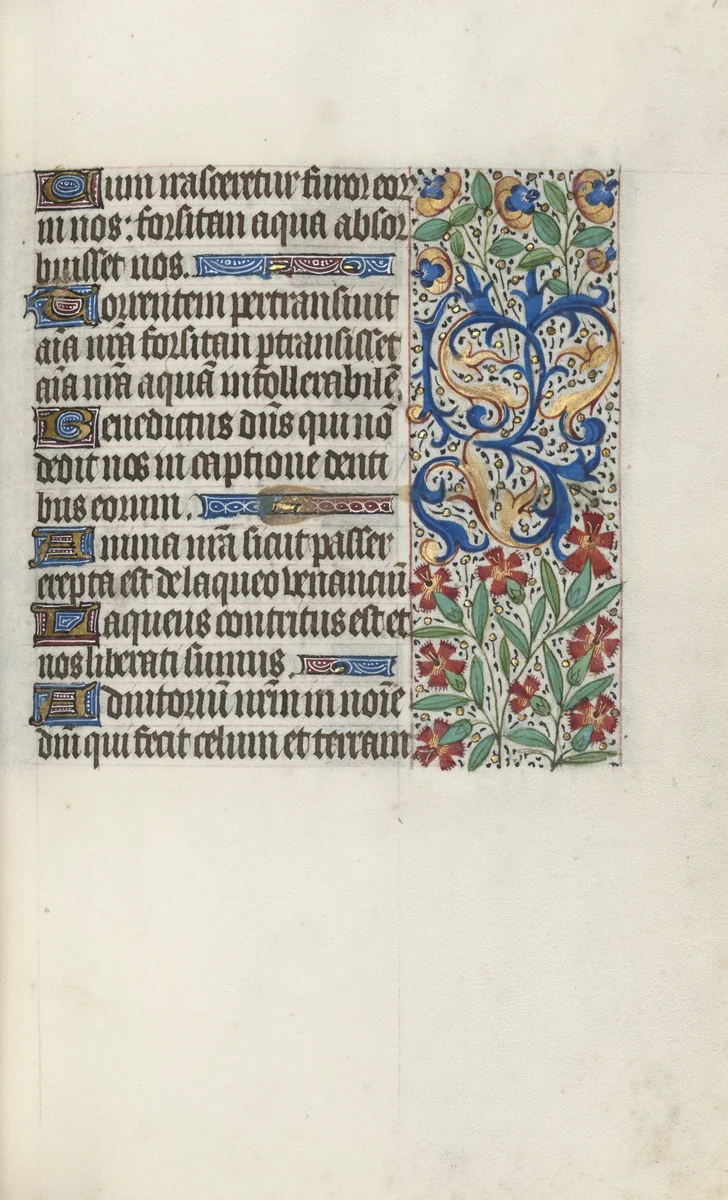 Cum irasceretur furor eor
in nos: forsitan aqua absor
buisset nos.
Torrentem pertransiuit
aĩa nr̃a forsitan ꝑtransisset
aĩa nr̃a aquã intollerabilẽ.
Benedictus dñs qui nõ
dedit nos in captione denti
bus eorum.
Anima nr̃a sicut passer
erepta est de laqueo venanciũ
Laqueus contritus est et
nos liberati sumus.
Adiutoriũ nr̃m in noĩe
dñi qui fecit celum et terram